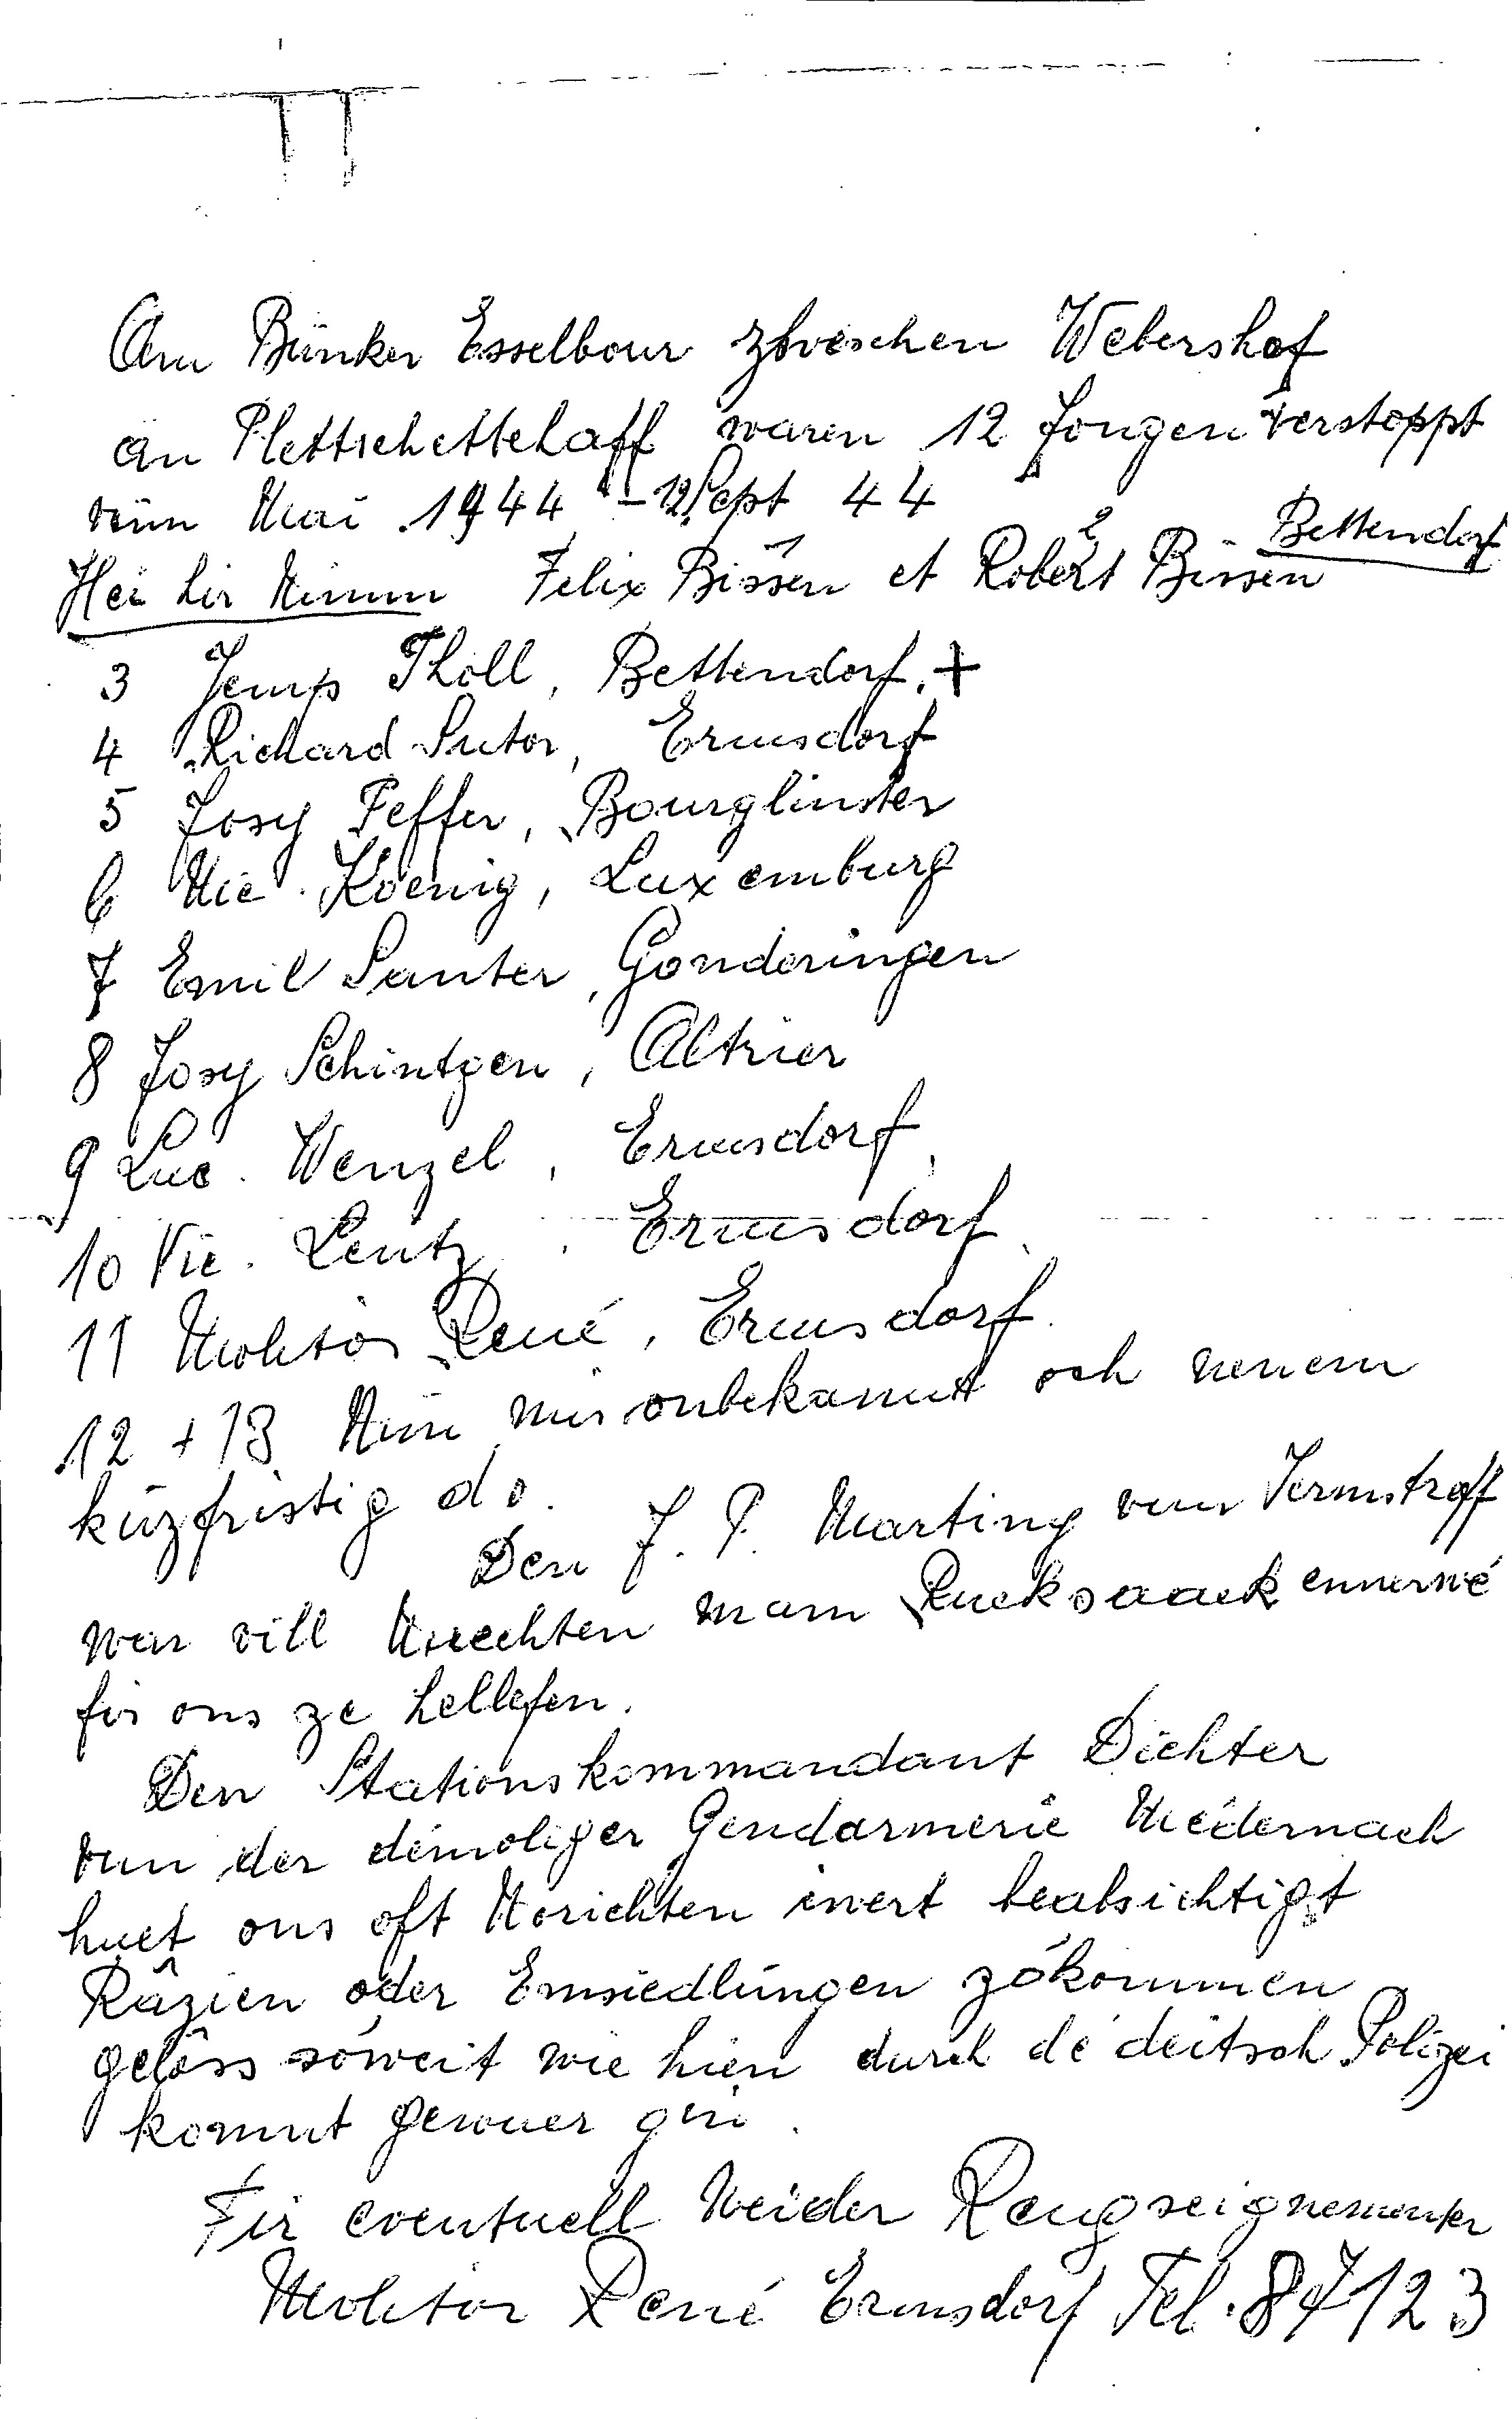 Am Bunker Esselbour zwëschen Webershof
an Plettschettehaff waren 12 Jongen verstoppt
vum Mai 1944 - 12 Sept 44
Hei hir Nimm Felix Bissen et Robert Bissen Bettendorf
3 Jemp Tholl, Bettendorf. +
4 Richard Sutor, Ermsdorf
5 Josy Feffer, Bourglinster
6 Nic. Koenig, Luxemburg
7 Emil Santer, Gonderingen
8 Josy Schintgen, Altrier
9 Luc. Wenzel, Ermsdorf,
10 Vic. Lentz, Ermsdorf
11 Molitor René, Ermsdorf.
12 + 13 Num mir onbekannt och nemem
kuzfristig do.
Den J. P. Marting vum Iermstroff
war vill Nuechten mam Rucksaack ennerwé
fir ons ze hellefen.
Den Stationskommandant Dichter
vun der démoliger Gendarmerie Médernach
huet ons oft Norichten iwert beabsichtigt
Râzien oder Emsiedlungen zókommen
gelóss sóweit wie hien durch dé deitsch Polizei
konnt gewuer gin.
Fir eventuell weider Rengseignementer
Molitor René Ermsdorf Tel. 87123